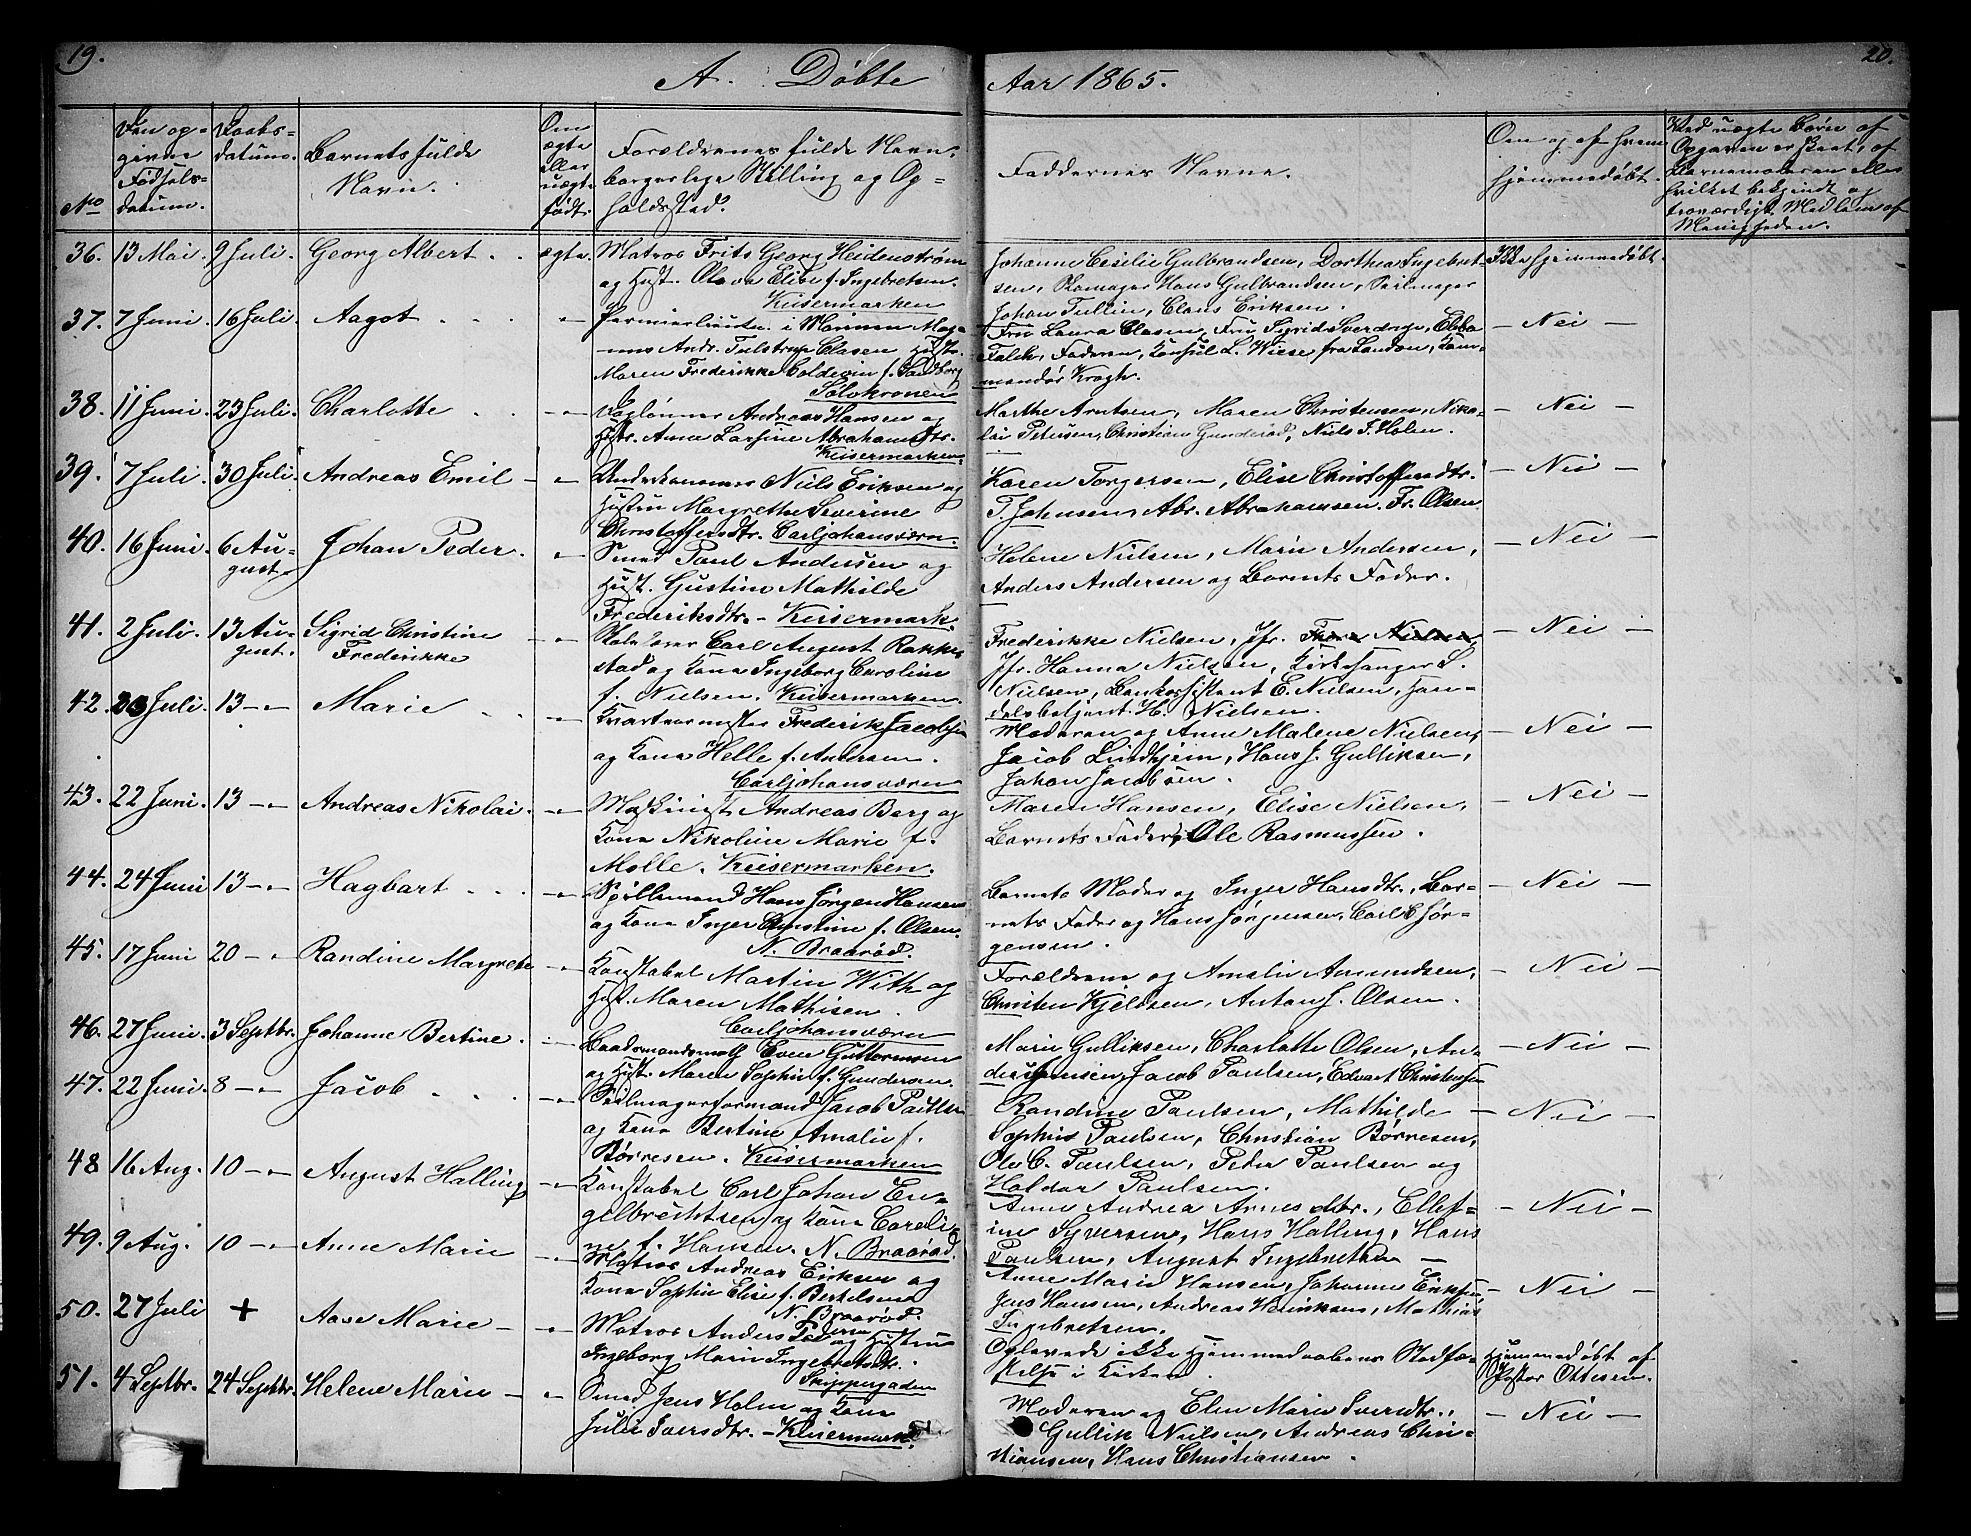 19.
20.
A. Döbte
Aar 1865.
No
Den op-
givne
Födsels-
datum.
Daabs-
datum.
Barnets fulde
Navn.
Om
ægte
eller
uægte
födt.
Forældrenes fulde Navn,
borgerlige Stilling og Op-
holdssted.
Faddernes Navne.
Om og af hvem
hjemmedöbt.
Ved uægte Börn af
Opgaven er skeet, af
Barnemoderen eller
hvilket bekjendt og
troværdigt Medlem af
Menigheden.
36. 13 Mai. 9 Juli. Georg Albert . . ægte.
Matros Frits Georg Heidenström
og Hust. Olava Elibe f. Ingebretsen.
Keisermarken
Johanne Cesilie Gulbrandsen, Dorthea Ingebret-
sen, Hans Gulbrandsen, Seilmager
Johan Tullin, Claus Eriksen.
Ikke hjemmedöbt.
37. 7 Juni. 16 Juli. Aagot . . . —"—
Premierlieutn. i Marinen Mag-
nus Andr. Tulstrup Clasen Hustr.
Maren Frederikke Coldevin f. Sandberg
Sölvkronen
Fru Laura Clasen, Fru Sigrid Sverdrup, Ebba
Falck, Faderen, Konsul L. Wiese fra London, Kom-
mandör Kragh.
— Nei —
38. 11 Juni. 23 Juli. Charlotte . . —"—
Daglönner Andreas Hansen og
Hstr. Anne Larsine Abrahamsdtr.
Keisermarken
Marthe Arntsen, Maren Christensen, Niko-
lai Petersen, Christian Gunderöd, Niels T. Holm.
— Nei —
39. 7 Juli. 30 Juli. Andreas Emil —"—
Underkanoneer Niels Eriksen og
Hustru Margrethe Severine
Christoffersdtr. Carljohansværn.
Karen Torgersen, Elise Christoffersdtr.
T. Johnsen, Abr. Abrahamsen. Fr. Olsen.
— Nei —
40. 16 Juni. 6 Au-
gust. Johan Peder . —"—
Smed Paul Andersen og
Hust. Gustine Mathilde
Frederiksdtr. — Keisermark.
Helene Nielsen, Marie Andersen,
Anders Andersen og Barnets Fader.
— Nei —
41. 2 Juli. 13 Au-
gust. Sigrid Christine
Frederikke —"—
Carl August Rakke-
stad og Kone Ingeborg Caroline
f. Nielsen. Keisermarken.
Frederikke Nielsen, Jfr. Thora Nielsen
Jfr. Hanna Nielsen, Kirkesanger L.
Nielsen, Bankassistent E. Nielsen, Han-
delsbetjent H. Nielsen.
— Nei —
42. 23 Juli. 13 —"— Marie . . —"—
Kvartermester Frederik Jacobsen
og Kone Helle f. Andersen.
Carljohansværn
Moderen og Anne Malene Nielsen,
Jacob Lindhjem, Hans J. Gulliksen,
Johan Jacobsen.
— Nei —
43. 22 Juni. 13 —"— Andreas Nikolai. —"—
Maskinist Andreas Berg og
Kone Nikoline Marie f.
Molle. Keisermarken.
Maren Hansen, Elise Nielsen,
Barnets Fader, Ole Rasmussen.
— Nei —
44. 24 Juni 13 —"— Hagbart . . . —"—
Spillemand Hans Jörgen Hansen
og Kone Inger Christine f. Olsen.
N. Braaröd.
Barnets Moder og Inger Hansdtr., Bar-
nets Fader og Hans Jörgensen, Carl C. Jör-
gensen.
— Nei —
45. 17 Juni 20 —"— Randine Margrete —"—
Konstabel Martin With og
Hust. Maren Mathisen.
Carljohansværn
Forældrene og Amalie Amundsen,
Christen Kjeldsen, Anton J. Olsen.
— Nei —
46. 27 Juni. 3 Septbr. Johanne Bertine. —"—
Baadsmandsmath Even Guttormsen
og Hust. Maren Sophie f. Gundersen.
Marie Gulliksen, Charlotte Olsen, An-
ders Jensen, Jacob Paulsen, Edvart Christensen
— Nei —
47. 22 Juni. 8 —"— Jacob . . . —"—
Seilmagerformand Jacob Paulsen
og Kone Bertine Amalie f.
Börresen. Keisermarken
Randine Paulsen, Mathilde
Sophie Paulsen, Christian Börresen,
Ole C. Paulsen, Peder Paulsen og
Haldor Paulsen.
— Nei —
48 16 Aug. 10 —"— August Halling —"—
Konstabel Carl Johan En-
gelbrechtsen og Kone Caroli-
ne f. Hansen. N. Braaröd.
Anne Andrea Arnesdtr., Ellef-
ine Syversen, Hans Halling, Hans
Paulsen, August Ingebretsen —
— Nei —
49. 9 Aug. 10 —"— Anne Marie —"—
Matros Andreas Eriksen og
Kone Sophie Elise f. Bertelsen
N. Braaröd.
Anne Marie Hansen, Johannes Eriksen,
Jens Hansen, Andreas Henriksen, Mathias
Ingebretsen.
— Nei —
50. 27 Juli + Aase Marie — —"—
Matros Anders Pedersen og Hustru
Ingeborg Marie Ingebretsdtr.
Skippergaden
Oplevede ikke Hjemmedaabens Stadfæ-
stelse i Kirken.
Hjemmedöbt af
Pastor Ottesen.
51. 4 Septbr. 24 Septbr. Helene Marie — —"—
Smed Jens Holm og Kone
Julie Iversdtr. — Keisermark.
Moderen og Elen Marie Iversdtr.,
Gullik Nielsen, Andreas Chri-
stiansen, Hans Christiansen.
— Nei —